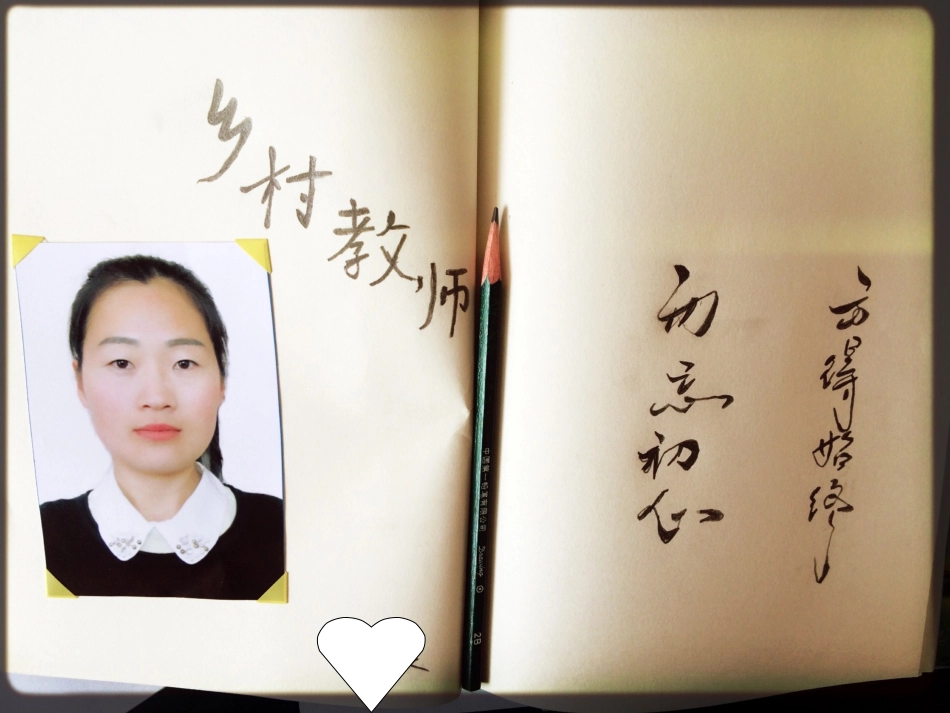 乡村教师
勿忘初心
方得始终
中国第一铅笔有限公司 2B